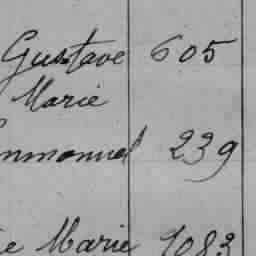 Gustave 605
Marie
mmanuel 239
e Marie 1083